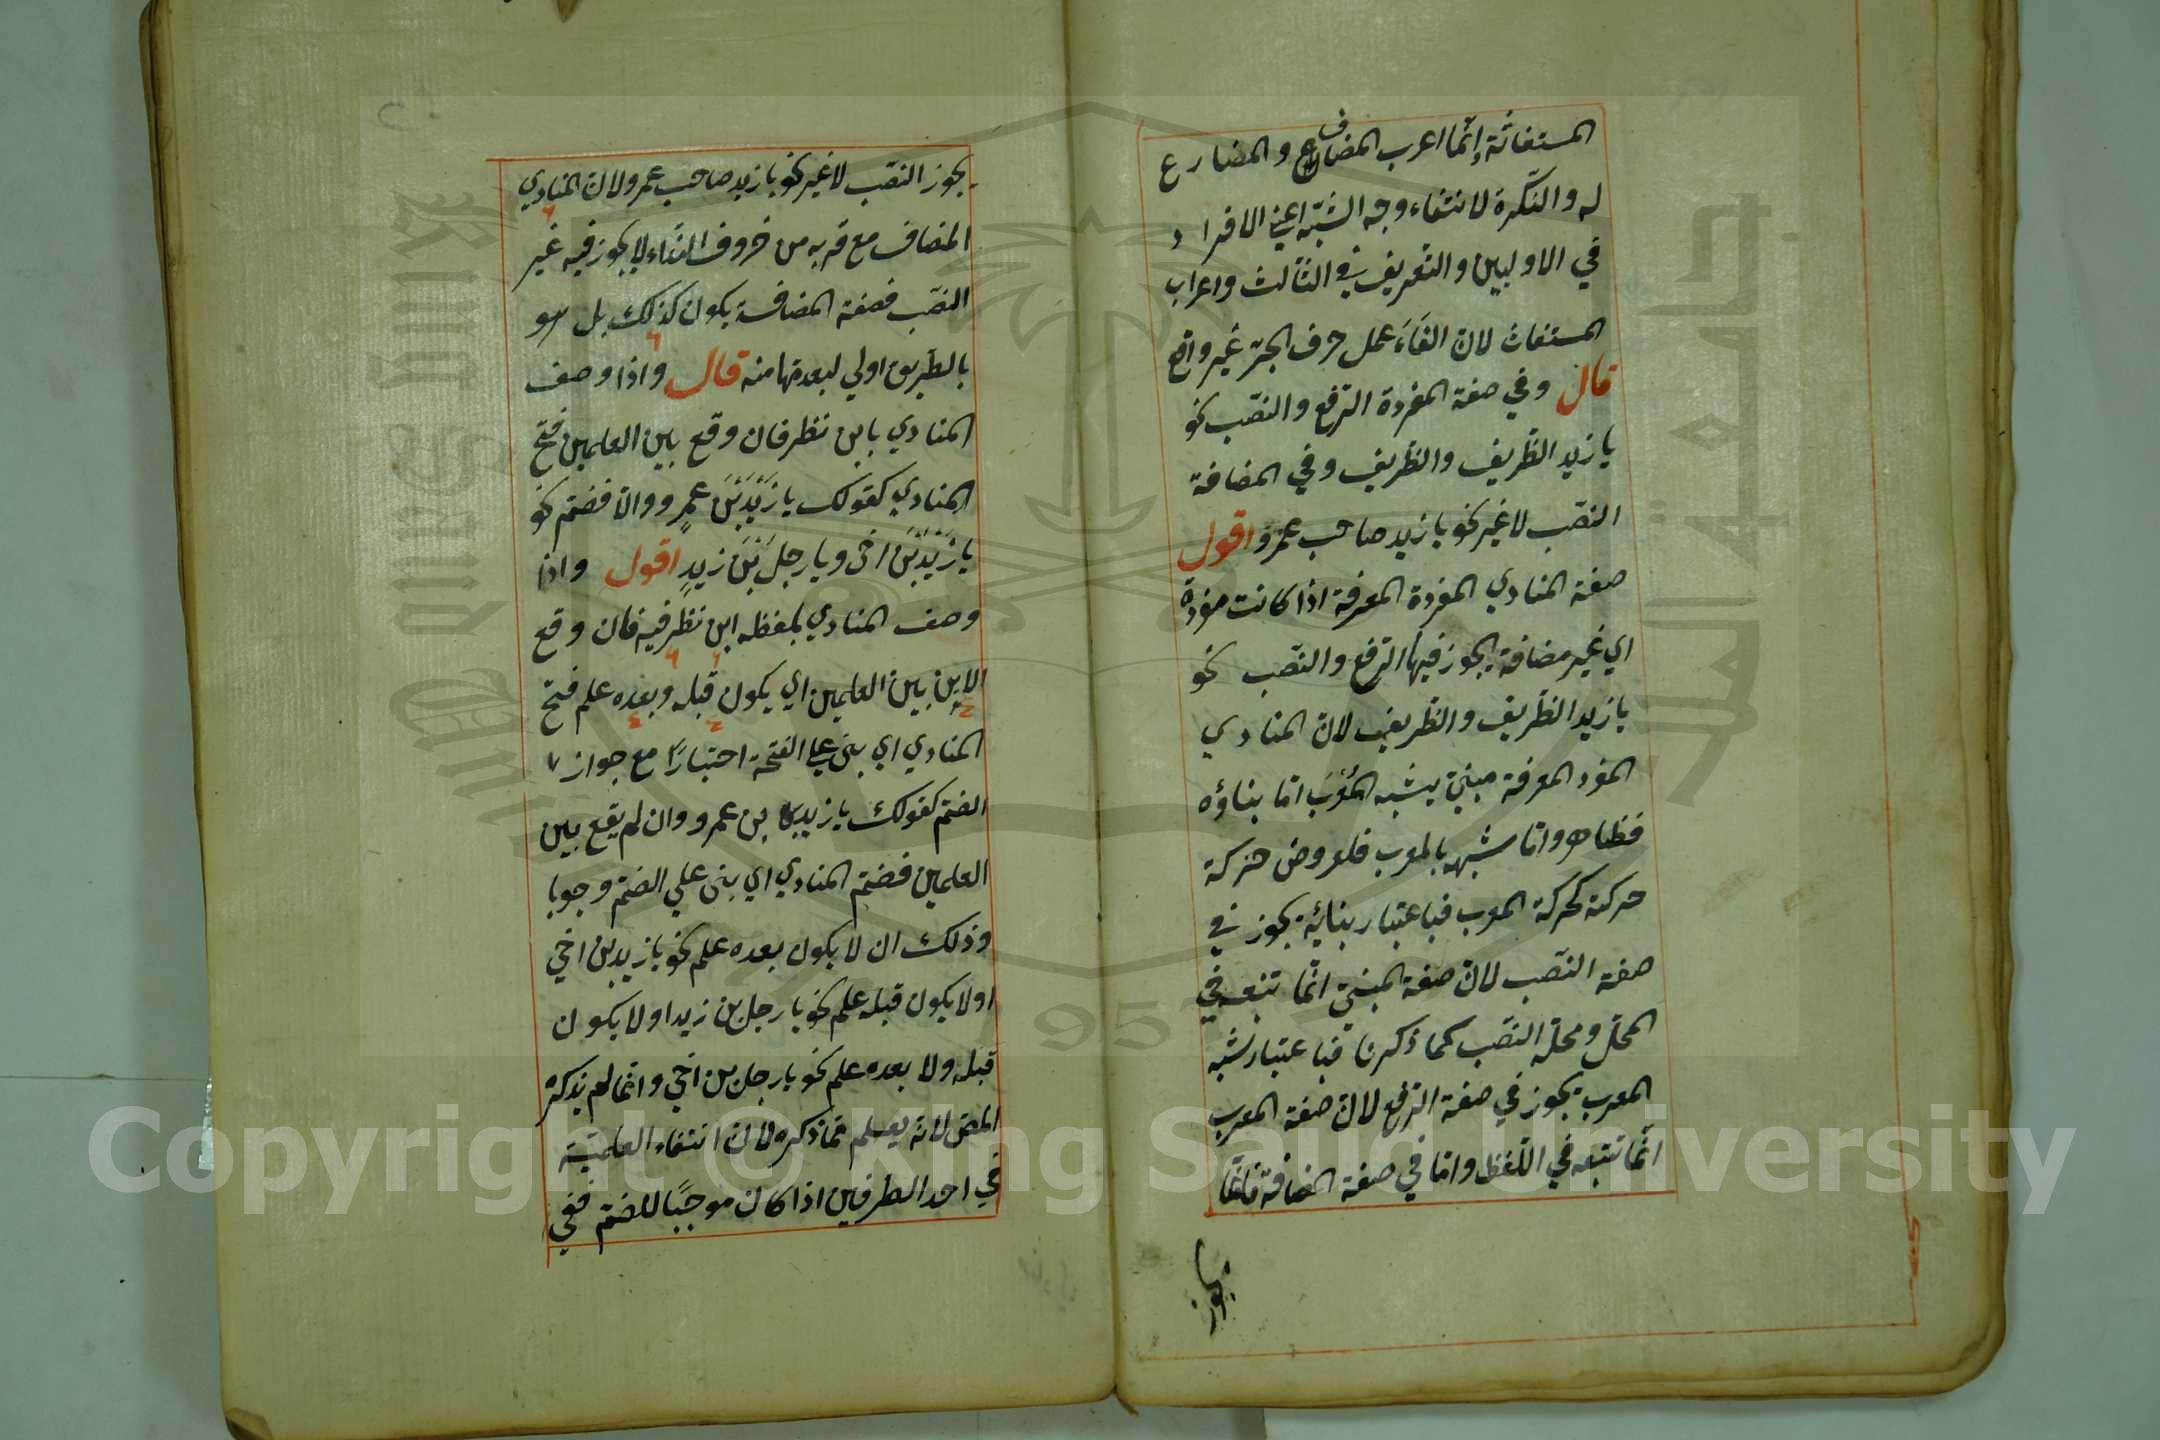 المستغاثة وإنّما اعرب المضاف والمضارع
له والنّكرة لانتفاء وجه الشبّه اعني الافراد
في الاوليين والتعريف في الثّالث واعراب
المستغاث لانّ الغَاءَ عمل حرف الجرّ غير واقع
قال وفي صفة المفردة الرّفع والنصّب نحو
يا زيد الظّريف والظّريف وفي المضافة
النصّب لا غير نحو يا زيد صاحب عمرو اقول
صفة المنادي المفردة المعرفة اذا كانت مفردة
اي غير مضافة يجوز فيها الرّفع والنصّب نحو
يا زيد الظّريف والظّريف لانّ المنادي
المفرد المعرفة مبنيّ يشبه المُعْرَبَ امّا بناؤه
فظاهر وامّا شبهه بالمعرب فلعروض حركة
حركته كحركة المعرب فباعتبار بنائية يجوز في
صفة النصّب لانّ صفة المبنيّ انّما تتبعه في
المحلّ ومحلّه النصّب كما ذكرنا فباعتبار شبه
المعرب يجوز في صفة الرّفع لانّ صفة المعرب
انّما تتبعه في اللّفظ وامّا في صفة المضافة فانّما
يجوز
يجوز النصّب لا غير نحو يا زيد صاحب عمرو لانّ المنادي
المضاف مع قربه من حروف النّداء لا يجوز فيه غير
النصّب فصفة المضافة يكون كذلك بل هو
بالطّريق اولي لبعدها منه قال واذا وصف
المنادي بابن نظر فان وقع بين العلمين فتح
المنادي كقولك يا زَيْدَبْنَ عمرٍو والّا فضمّ نحو
يا زَيْدُبْنَ اخى ويا رجلُ بْنَ زيدٍ اقول واذا
وصف المنادي بلفظه ابن نظر فيه فان وقع
الابن بين العلمين اي يكون قبله وبعده علم فتح
المنادي اي بني علي الفتحة اختيارًا مع جواز
الضمّ كقولك يا زيد بن عمرو وان لم يقع بين
العلمين فضمّ المنادي اي بني علي الضمّ وجوبا
وذلك ان لا يكون بعده علم نحو يا زيد بن اخي
او لا يكون قبله علم نحو يا رجل بن زيد او لا يكون
قبله ولا بعده علم نحو يا رجل بن اخي وانّما لم يذكره
المص لانّه يعلم ممّا ذكره لانّ انتفاء العلميّة
في احد الطرفين اذا كان موجبًا للضمّ ففي
Copyright © King Saud University